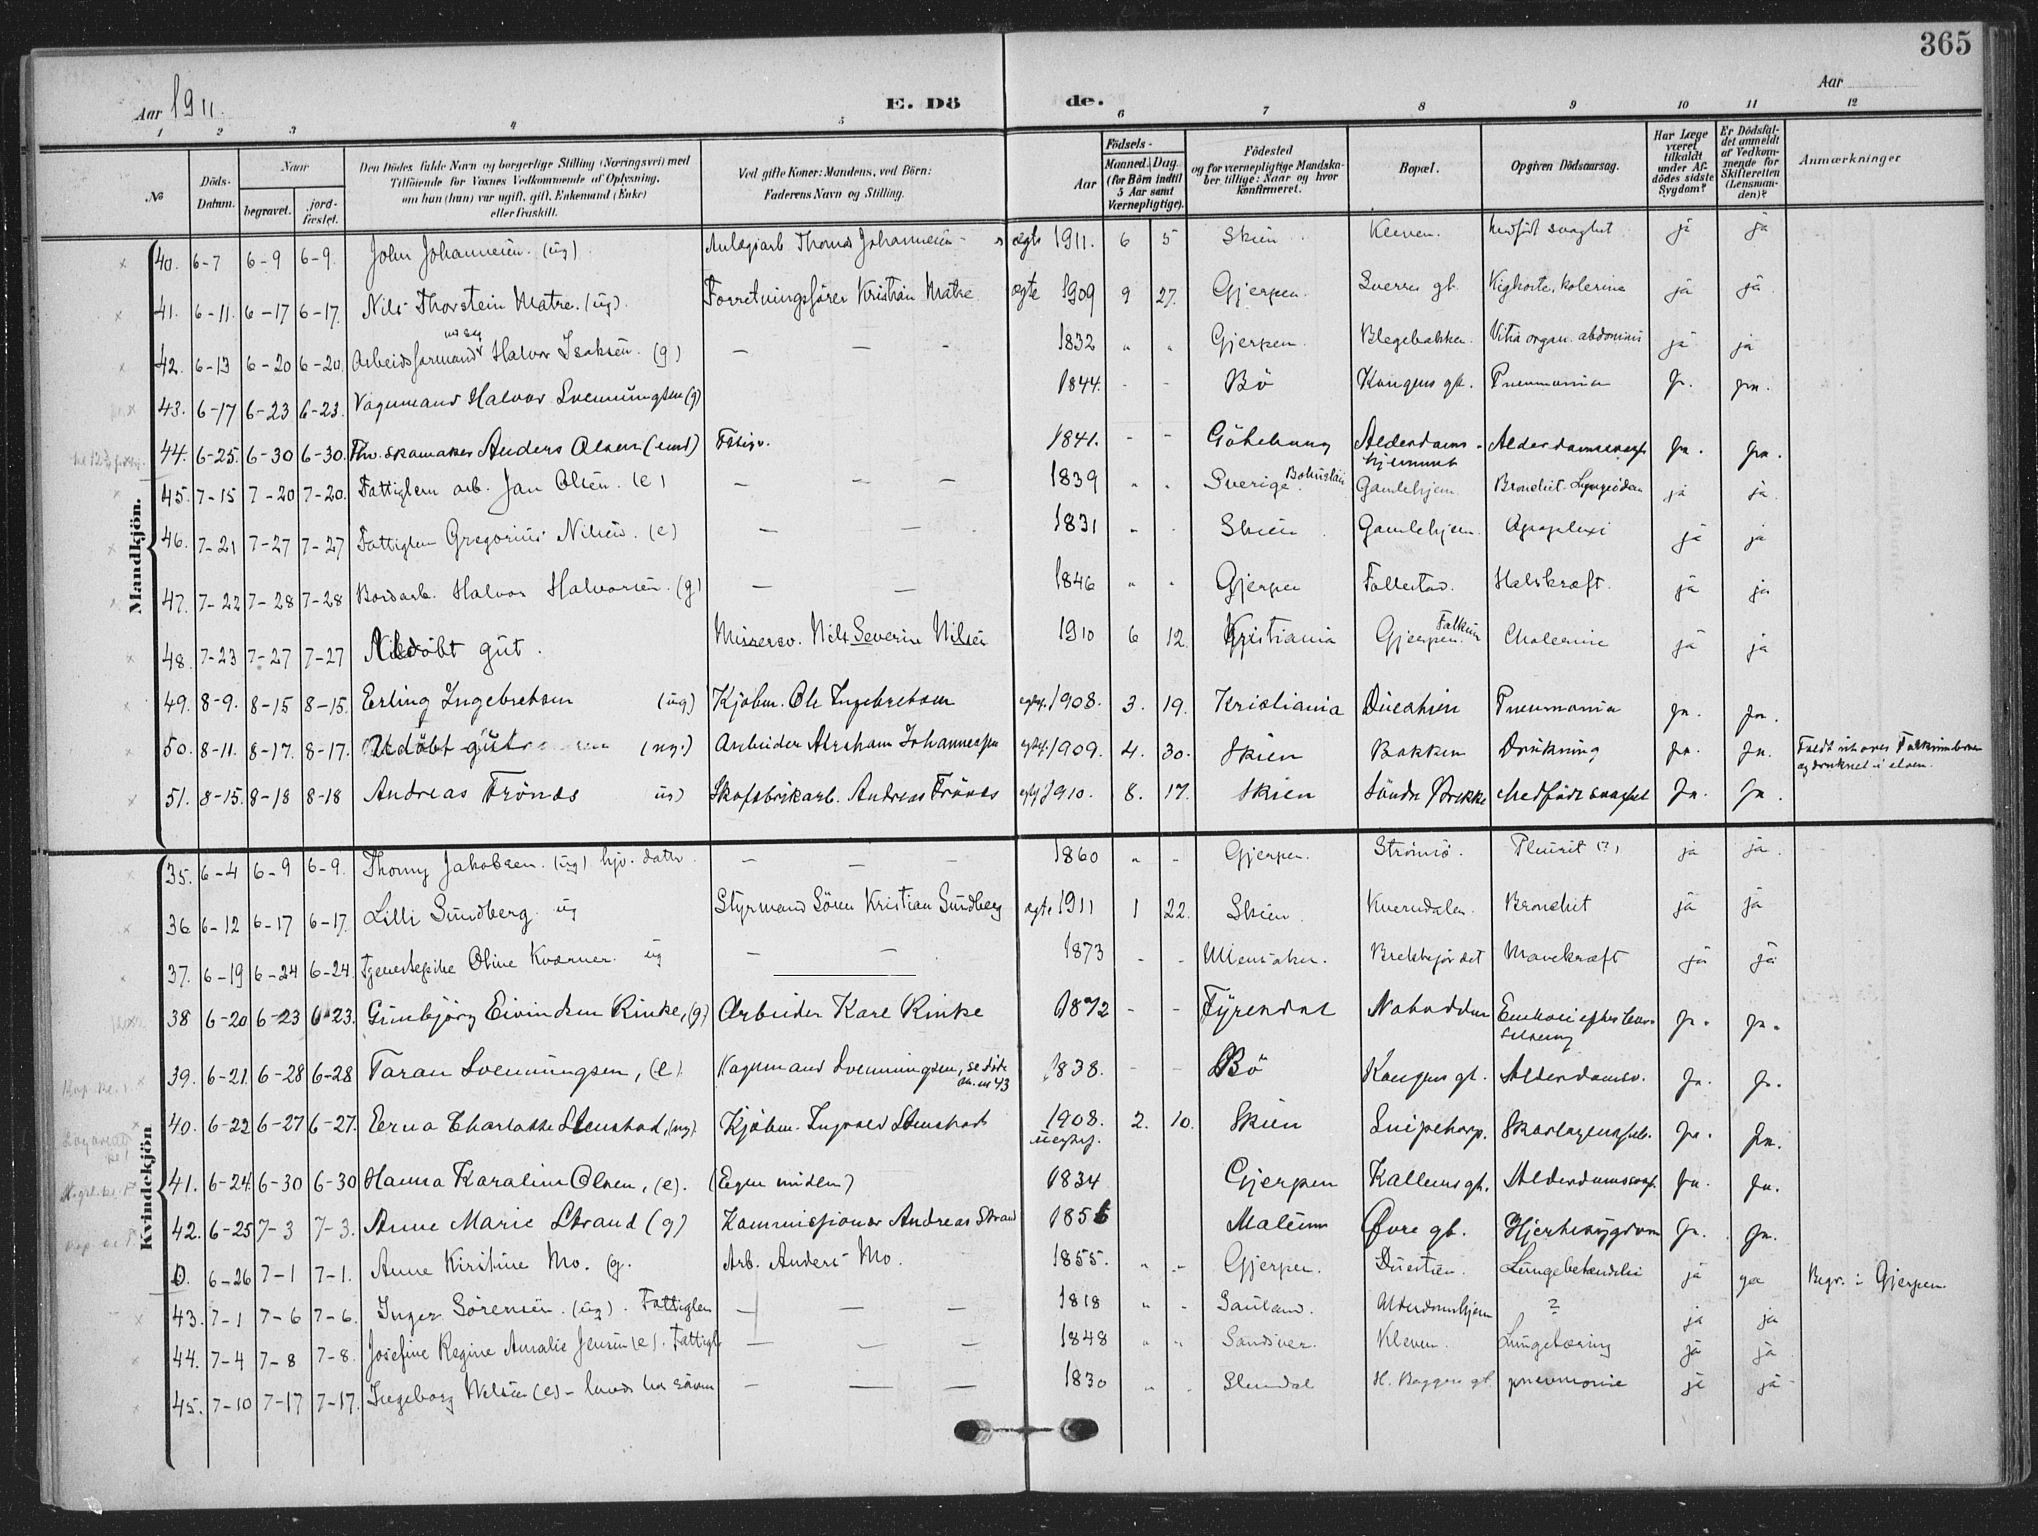 365
Aar 1911.
E. Döde.
Aar
1 2 3 4 5 6 7 8 9 10 11 12
№
Döds-Datum.
Naar
begravet.
jord-fæstet.
Den Dödes fulde Navn og borgerlige Stilling (Næringsvei) med
Tilföiende for Voxnes Vedkommende af Oplysning,
om han (hun) var ugift, gift, Enkemand (Enke)
eller fraskilt.
Ved gifte Koner: Mandens, ved Börn:
Faderens Navn og Stilling.
Aar
Födsels-
Maaned. Dag.
(for Börn indtil
5 Aar samt
Værnepligtige).
Födested
og for værnepligtige Mandska-
ber tillige: Naar og hvor
konfirmeret.
Bopæl.
Opgiven Dödsaarsag.
Har Læge
været
tilkaldt
under Af-
dödes sidste
Sygdom?
Er Dödsfal-
det anmeldt
af Vedkom-
mende for
Skifteretten
(Lensman-
den)?
Anmærkninger
Mandkjön.
40. 6-7 6-9 6-9. John Johannesen. (ug) Thomas Johannesen ægte 1911. 6 5 Skien Kleven. medfødt svaghet ja ja
41. 6-11. 6-17 6-17. Nils Thorstein Matre. (ug). Forretningsfører Kristian Matre ægte 1909 9 27. Gjerpen. Sverres gt. Kighoste, kolerine ja ja
42. 6-13 6-20 6-20. Arbeidsformand Halvor Isaksen. (g) — — - 1832 " " Gjerpen. Blegebakken. Vitia organ. abdominis ja ja
43. 6-17 6-23 6-23. Vognmand Halvor Svennungsen (g) 1844. - - Bö Kongens gt. Pneumonia ja. ja.
44. 6-25. 6-30 6-30. Fhv. skomaker Anders Olsen (enk) Fattigv. 1841. - - Göteborg Alderdoms-hjemmet Alderdomssvagh. ja. ja.
45. 7-15 7-20 7-20. Fattiglem arb. Jan Olsen. (e) — — — 1839 " " Sverige Bohuslän Gamlehjem. Bronchit. Lungeödem ja ja
46. 7-21 7-27 7-27 Fattiglem Gregorius Nilsen. (e) — — 1831 " " Skien Gamlehjem. Apoplexi ja ja
47. 7-22 7-28 7-28 Bordarb. Halvor Halvorsen. (g) — — 1846 " " Gjerpen Follestad. Halskræft. ja ja
48. 7-23 7-27 7-27 Udöbt gut. Nils Severin Nilsen 1910 6 12. Kristiania Gjerpen. Falkum Cholerine ja ja
49. 8-9. 8-15 8-15. Erling Ingebretsen (ug) Kjöbm. Ole Ingebretsen 1908. 3. 19. Kristiania Duestien Pneumonia ja. ja.
50. 8-11. 8-17. 8-17. Udöbt gut (ug.) Arbeider Abraham Johannessen 1909. 4. 30. Skien Bakken Drukning ja. ja. Faldt ut over Falkumbroen
og druknet i elven.
51. 8-15. 8-18 8-18 Andreas Trönes ug) Skofabrikarb. Andreas Trönes 1910. 8. 17. Skien Söndre Brekke Medfödt svaghet ja. ja.
Kvindekjön
35. 6-4 6-9 6-9. Thomy Jakobsen. (ug) hjv. datter — — — 1860 " - Gjerpen. Strömsö. Pleurit (?) ja ja.
36 6-12 6-17 6-17. Lilli Sundberg ug Styrmand Sören Kristian Sundberg ægte 1911 1 22. Skien. Kverndalen. Bronchit ja ja
37. 6-19 6-24 6-24. Tjenestepike Oline Kværner. ug — — 1873 - - Ullensaker. Brekkejordet Mavekræft ja ja
38 6-20 6-23 6-23. Gunbjörg Eivindsen Rinke, (g) Arbeider Karl Rinke 1872 - - Fyresdal Notodden ja. ja.
39. 6-21. 6-28 6-28 Taran Svennungsen, (e). Vognmand Svennungsen, se döde m. nr 43 1838. - - Bö Kongens gt. Alderdomsv. ja. ja.
40. 6-22 6-27 6-27. Erna Charlotte Stenstad, (ug). Kjöbm. Ingvald Stenstad 1908. 2. 10. Skien Snipetorp. Skarlagensfeb. ja. ja.
41. 6-24. 6-30 6-30 Hanna Karoline Olsen, (e). (Egne midler) 1834 Gjerpen Kallems gt. Alderdomssvagh. ja. ja.
42. 6-25 7-3 7-3. Anne Marie Strand (g) Kommissionær Andreas Strand 1856 Melum Övre gt. Hjertesygdom ja. ja.
0. 6-26 7-1 7-1. Anne Kirstine Mo. (g. Arb. Anders Mo. 1855. " - Gjerpen. Duestien. Lungebetændelse ja ja Begr. i Gjerpen
43. 7-1 7-6 7-6. Inger Sörensen. (ug). Fattiglem — — — 1818 " - Sauland. Alderdomshjem ? ja ja
44. 7-4 7-8 7-8. Josefine Regine Amalie Jensen (e). Fattigl — — — 1848 " " Sandsver. Kleven. Lungetæring ja ja
45. 7-10 7-17 7-17. Ingeborg Nilsen (e) — — — 1830 " . Slemdal H. Baggers gt pneumonie ja ja